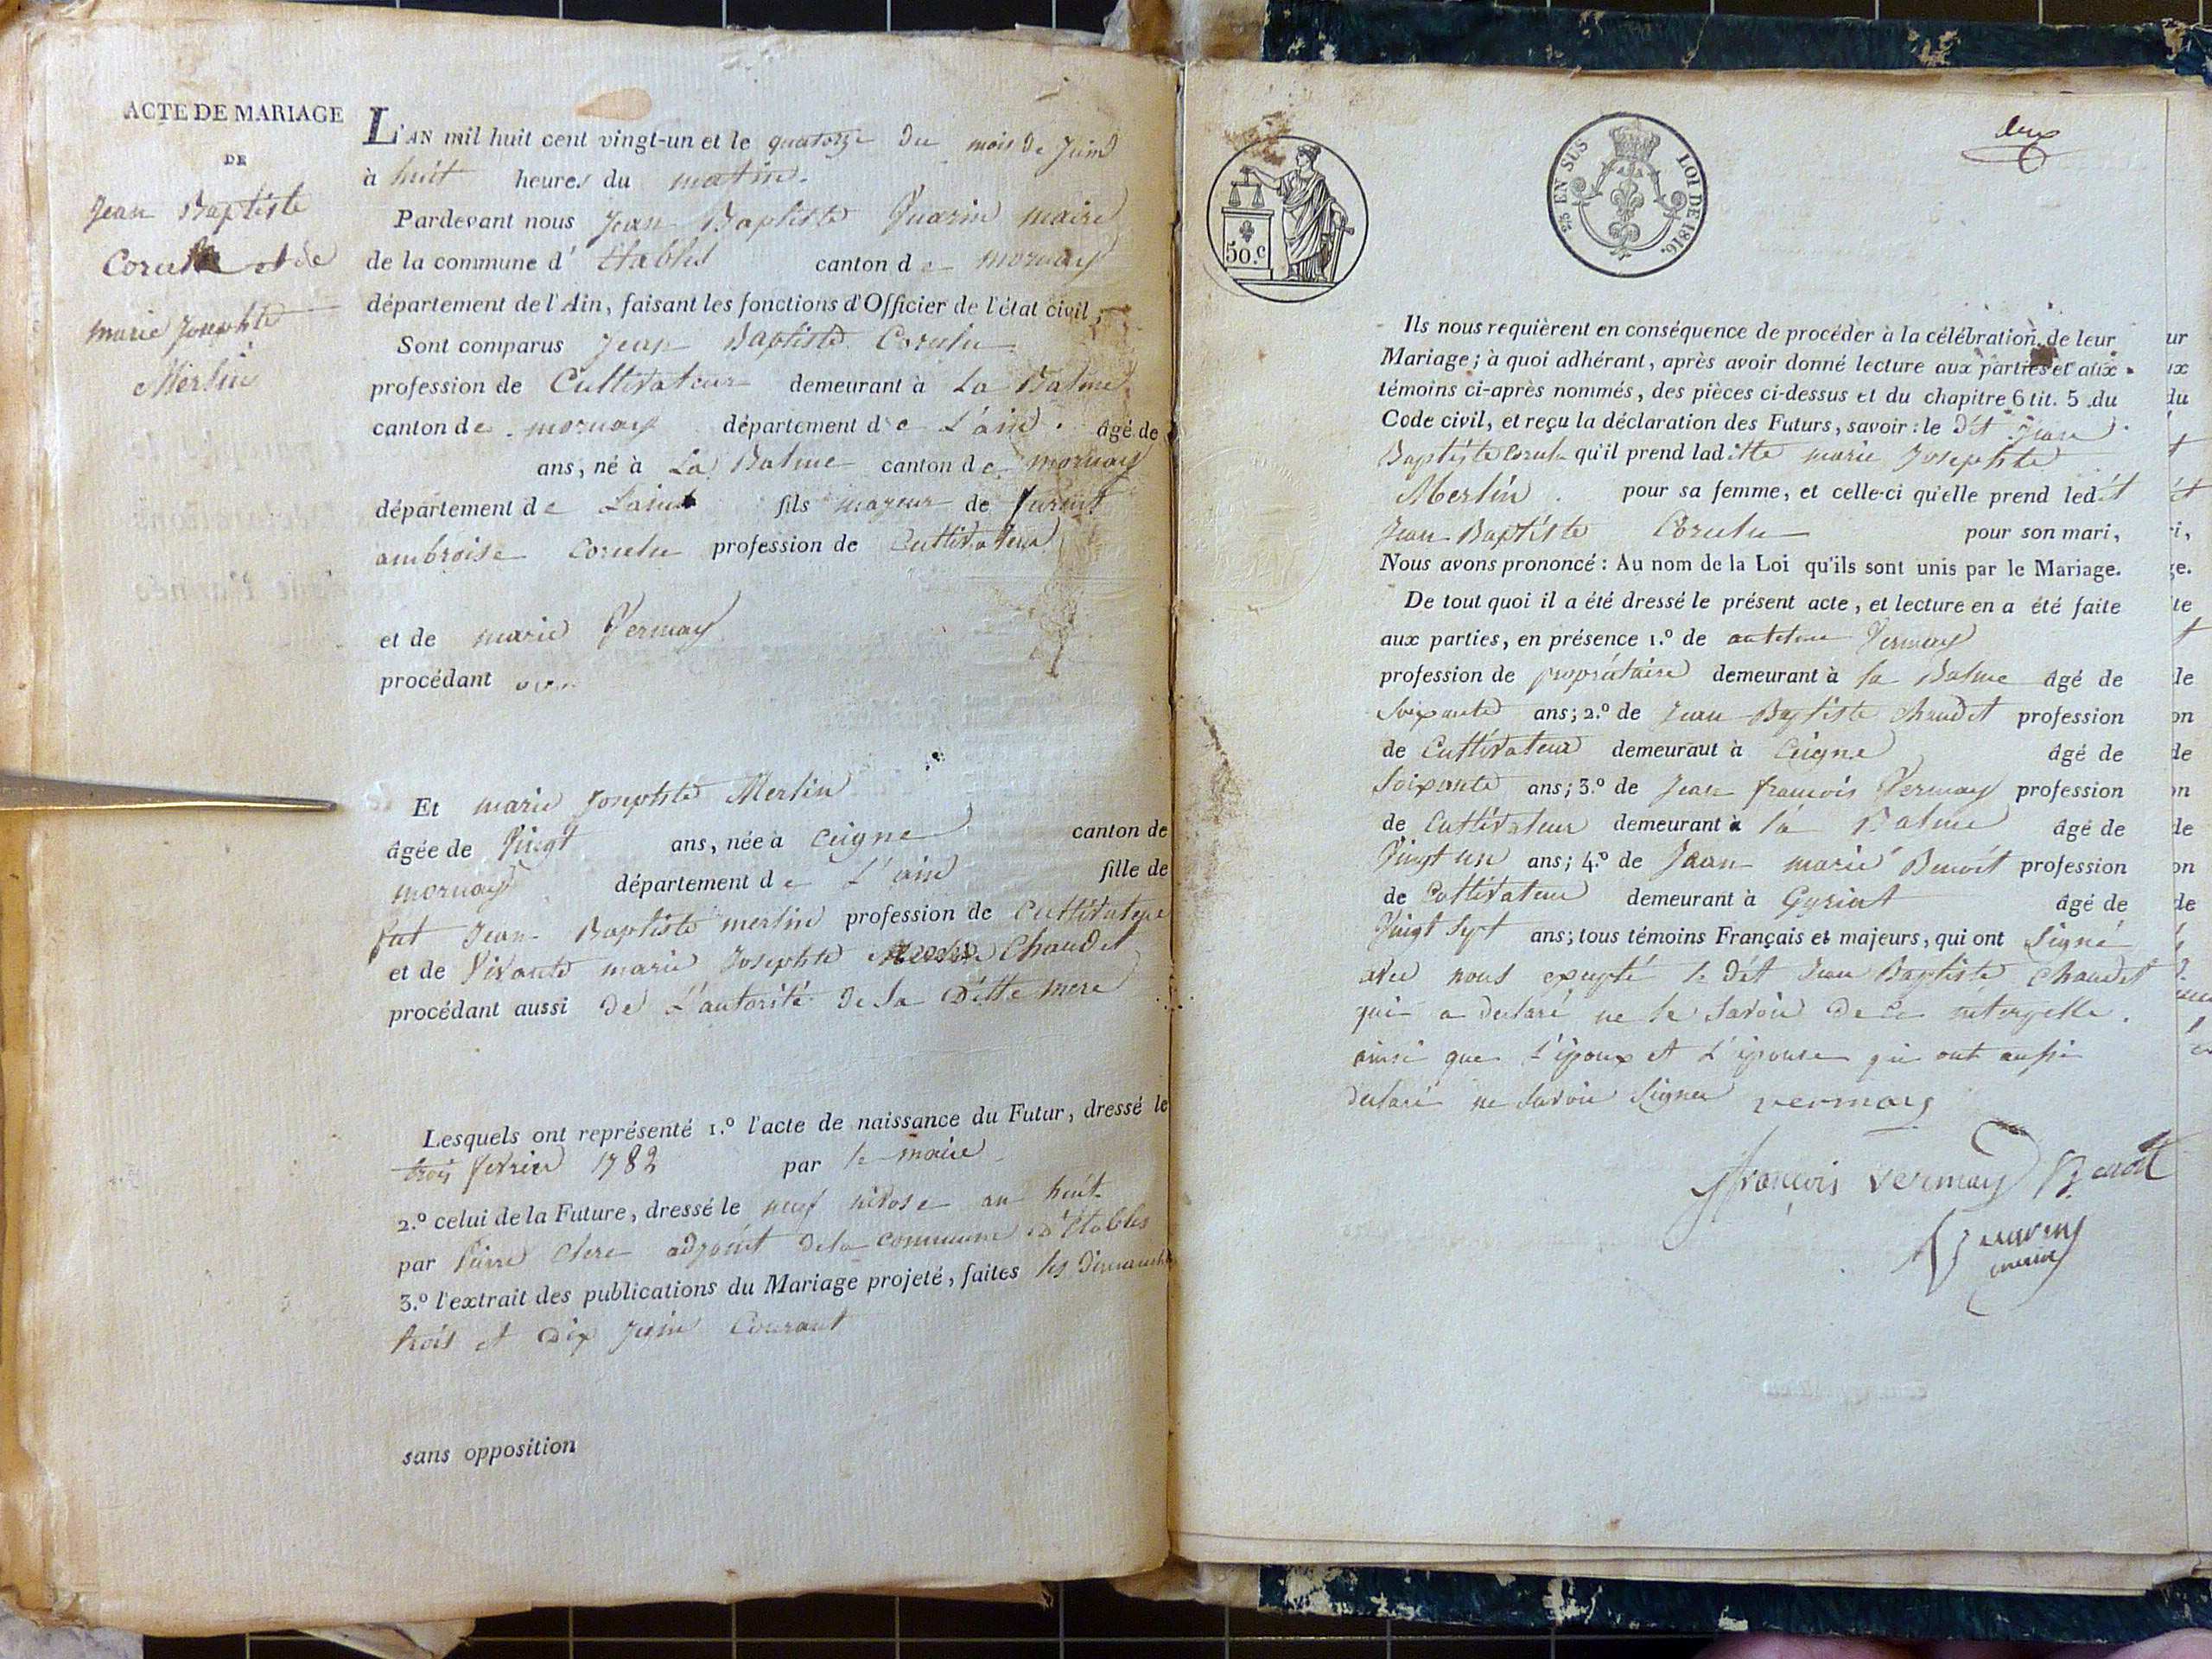 ACTE DE MARIAGE
DE
Jean Baptiste
et de
marie Josephte
Merlin
L'AN mil huit cent vingt-un et le quatorze du mois de Juin
à huit heures du matin.
Pardevant nous Jean Baptiste Quarin maire
de la commune d' Etables canton de mornay
département de l'Ain, faisant les fonctions d'Officier de l'état civil,
Sont comparus Jean Baptiste Corulu
profession de Cultivateur demeurant à La Balme
canton de mornay département de L'ain. âgé de
ans, né à La Balme canton de mornay
département de Lain fils majeur de
ambroise Corulu profession de Cultivateur
et de marie Vermay
procédant
Et marie Josephte Merlin
âgée de Vingt ans, née à Ceigne canton de
mornay département de L'ain fille de
fut Jean Baptiste merlin profession de Cultivateur
et de Vivante marie Josephte Chaudet
procédant aussi de L'autorité de la ditte mere
Lesquels ont représenté 1.º l'acte de naissance du Futur, dressé le
trois fevrier 1782 par le maire
2.º celui de la Future, dressé le neuf nivose an huit
par Pierre Clerc adjoint dela commune D'Etables
3.º l'extrait des publications du Mariage projeté, faites les Dimanche
trois et Dix Juin Courant
sans opposition
50.c
EN SUS LOI DE 1816.
deux
Ils nous requièrent en conséquence de procéder à la célébration de leur
Mariage; à quoi adhérant, après avoir donné lecture aux parties et aux
témoins ci-après nommés, des pièces ci-dessus et du chapitre 6 tit. 5 du
Code civil, et reçu la déclaration des Futurs, savoir: le dit Jean
Baptiste Corulu qu'il prend laditte marie Josephte
Merlin pour sa femme, et celle-ci qu'elle prend ledit
Jean Baptiste Corulu pour son mari,
Nous avons prononcé: Au nom de la Loi qu'ils sont unis par le Mariage.
De tout quoi il a été dressé le présent acte, et lecture en a été faite
aux parties, en présence 1.º de Vermay
profession de propriétaire demeurant à la Balme âgé de
Soixante ans; 2.º de Jean Baptiste Chaudet profession
de Cultivateur demeurant à Ceigne âgé de
Soixante ans; 3.º de Jean francois Vermay profession
de Cultivateur demeurant à la Balme âgé de
Vingt un ans; 4.º de Jean marie Benoit profession
de Cultivateur demeurant à Gyriat âgé de
Vingt Sept ans; tous témoins Français et majeurs, qui ont Signé
avec nous excepté le dit Jean Baptiste Chaudet
qui a declaré ne le Savoir de ce interpellé.
ainsi que L'époux et L'épouse qui ont aussi
declaré ne Savoir Signer vermay
francois vermay Benoit
Quarin
maire